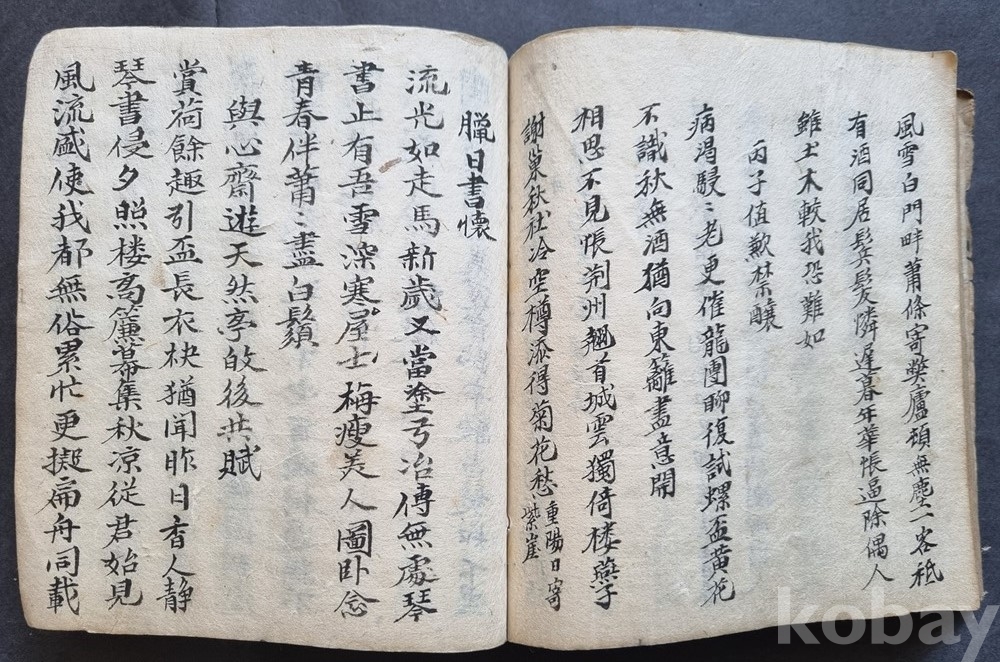 風雪白門畔蕭條寄弊廬頑無塵一客秪
有酒同居鬓髮隣遲暮年華悵逼除偶人
雖土木較我恐難如
丙子値歉禁釀
病渴駸〻老更催龍團聊復試螺盃黄花
不識秋無酒猶向東籬盡意開
相思不見悵荆州翹首城雲獨倚楼燕子
謝巢秋社冷空樽添得菊花愁 重陽日寄紫崖
臘日書懷
流光如走馬新歲又當塗弓冶傳無處琴
書止有吾雪深寒屋士梅瘦美人圖卧念
青春伴蕭〻盡白鬚
與心齋遊天然亭的後共賦
賞荷餘趣引盃長衣袂猶聞昨日香人静
琴書侵夕照楼高簾幕集秋凉從君始見
風流盛使我都無俗累忙更擬扁舟同載
kobay